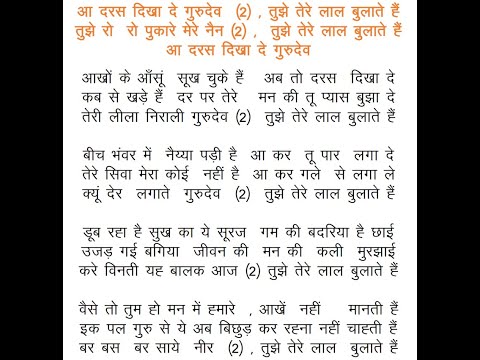 आ दरस दिखा दे गुरुदेव (2) , तुझे तेरे लाल बुलाते हैं
तुझे रो रो पुकारे मेरे नैन (2) , तुझे तेरे लाल बुलाते हैं
आ दरस दिखा दे गुरुदेव
आखों के आँसूं सूख चुके हैं अब तो दरस दिखा दे
कब से खड़े हैं दर पर तेरे मन की तू प्यास बुझा दे
तेरी लीला निराली गुरुदेव (2) तुझे तेरे लाल बुलाते हैं
बीच भंवर में नैय्या पड़ी है आ कर तू पार लगा दे
तेरे सिवा मेरा कोई नहीं है आ कर गले से लगा ले
क्यूं देर लगाते गुरुदेव (2) तुझे तेरे लाल बुलाते हैं
डूब रहा है सुख का ये सूरज गम की बदरिया है छाई
उजड़ गई बगिया जीवन की मन की कली मुरझाई
करे विनती यह बालक आज (2) तुझे तेरे लाल बुलाते हैं
वैसे तो तुम हो मन में हमारे , आखें नहीं मानती हैं
इक पल गुरु से ये अब बिछुड़ कर रहना नहीं चाहती हैं
बर बस बर साये नीर (2) , तुझे तेरे लाल बुलाते हैं